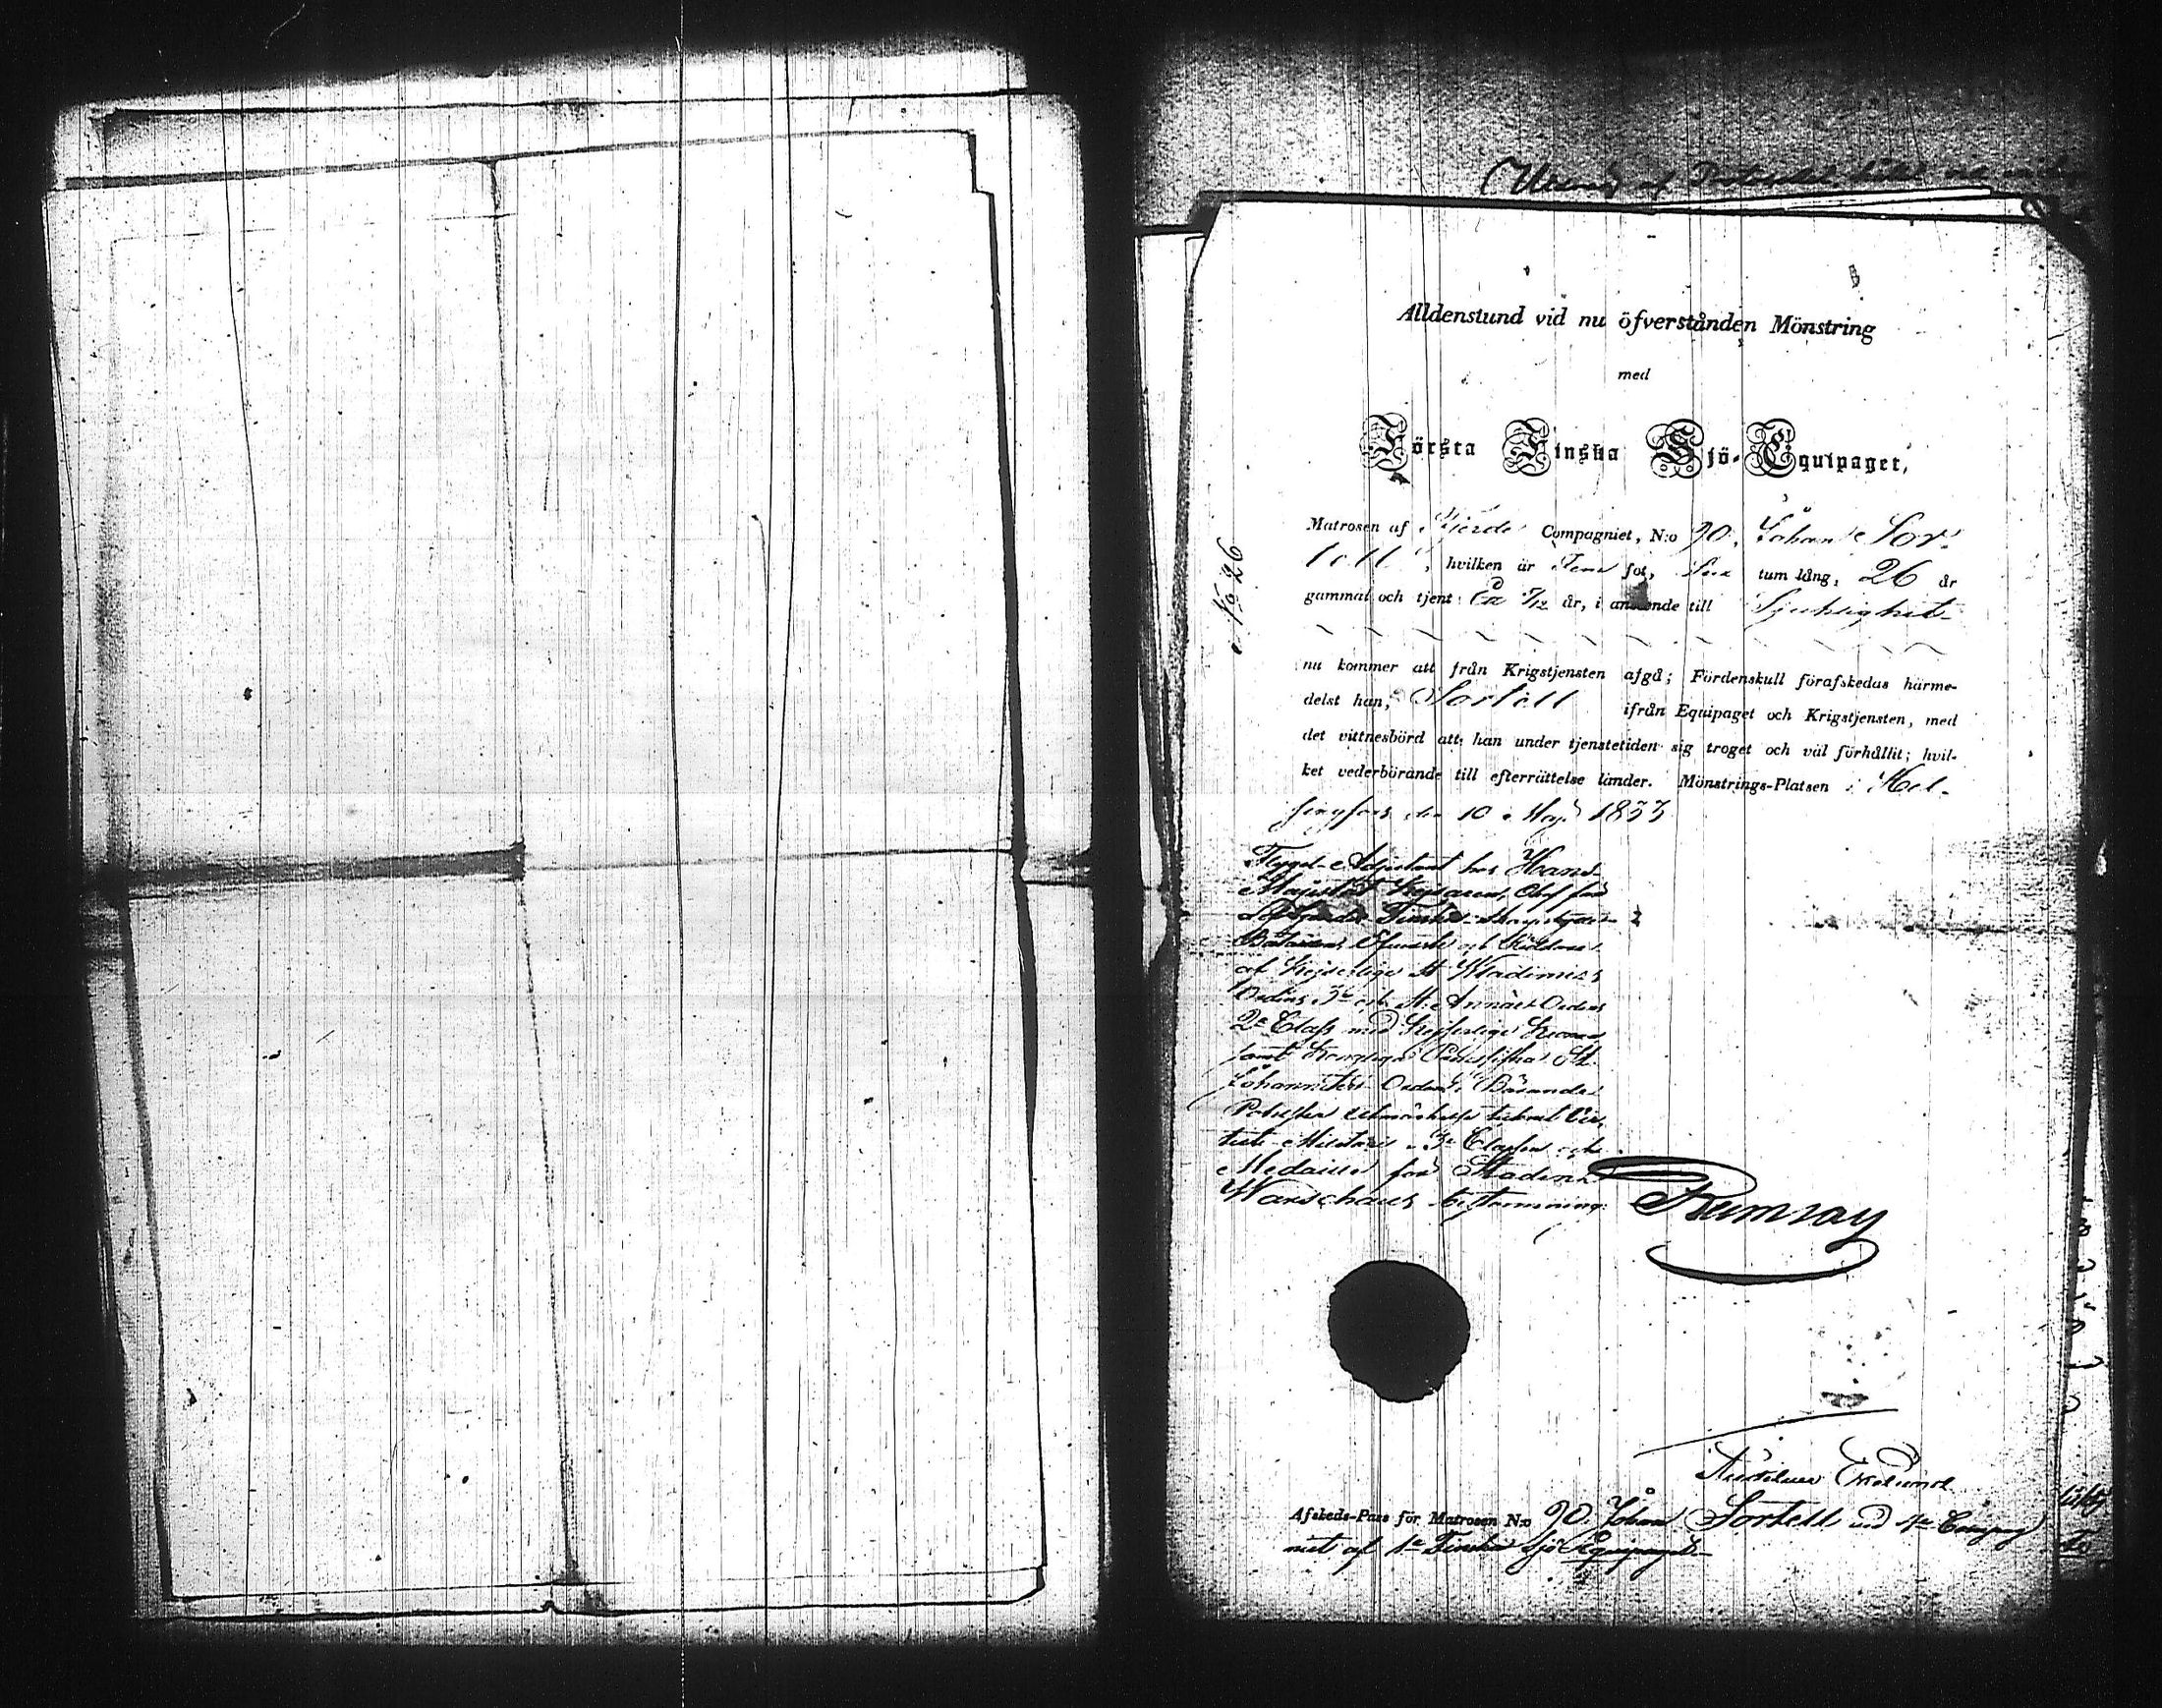 Utdrag af
Alldenstund vid nu öfverstånden Mönstring
med
Första Finska Sjö-Equipaget,
No 26
Matrosen af Fjerde Compagniet, N:o 90, Johan Sor-
tell, hvilken är Fem fot, Sex tum lång, 26 år
gammal och tjent år, i anseende till Sjuklighet
nu kommer att från Krigstjensten afgå; Fördenskull förafskedas härme-
delst han, Sortell ifrån Equipaget och Krigstjensten, med
det vittnesbörd att han under tjenstetiden sig troget och väl förhållit; hvil-
ket vederbörande till efterrättelse länder. Mönstrings-Platsen i Hel-
singfors den 10 Maji 1833
Flygel-Adjutant hos Hans
Majestät Kejsaren, Chef för
Finska Skarpskytte-
Bataillon och Riddare
af Kejserliga St Wladimirs
Ordens 3e och St Annæ Ordens
2e Class med Kejserliga Krona
samt Kongliga St
Johanniter Orden, Bärande
Polska
tuti Militari 3e Classen och
Medaille för Staden
Warschaus bestormning.
Ramsay
Ekelund
Afskeds-Pass för Matrosen N:o 90 Johan Sortell vid 4e Compag
niet af 1a Finska Sjö Equipaget